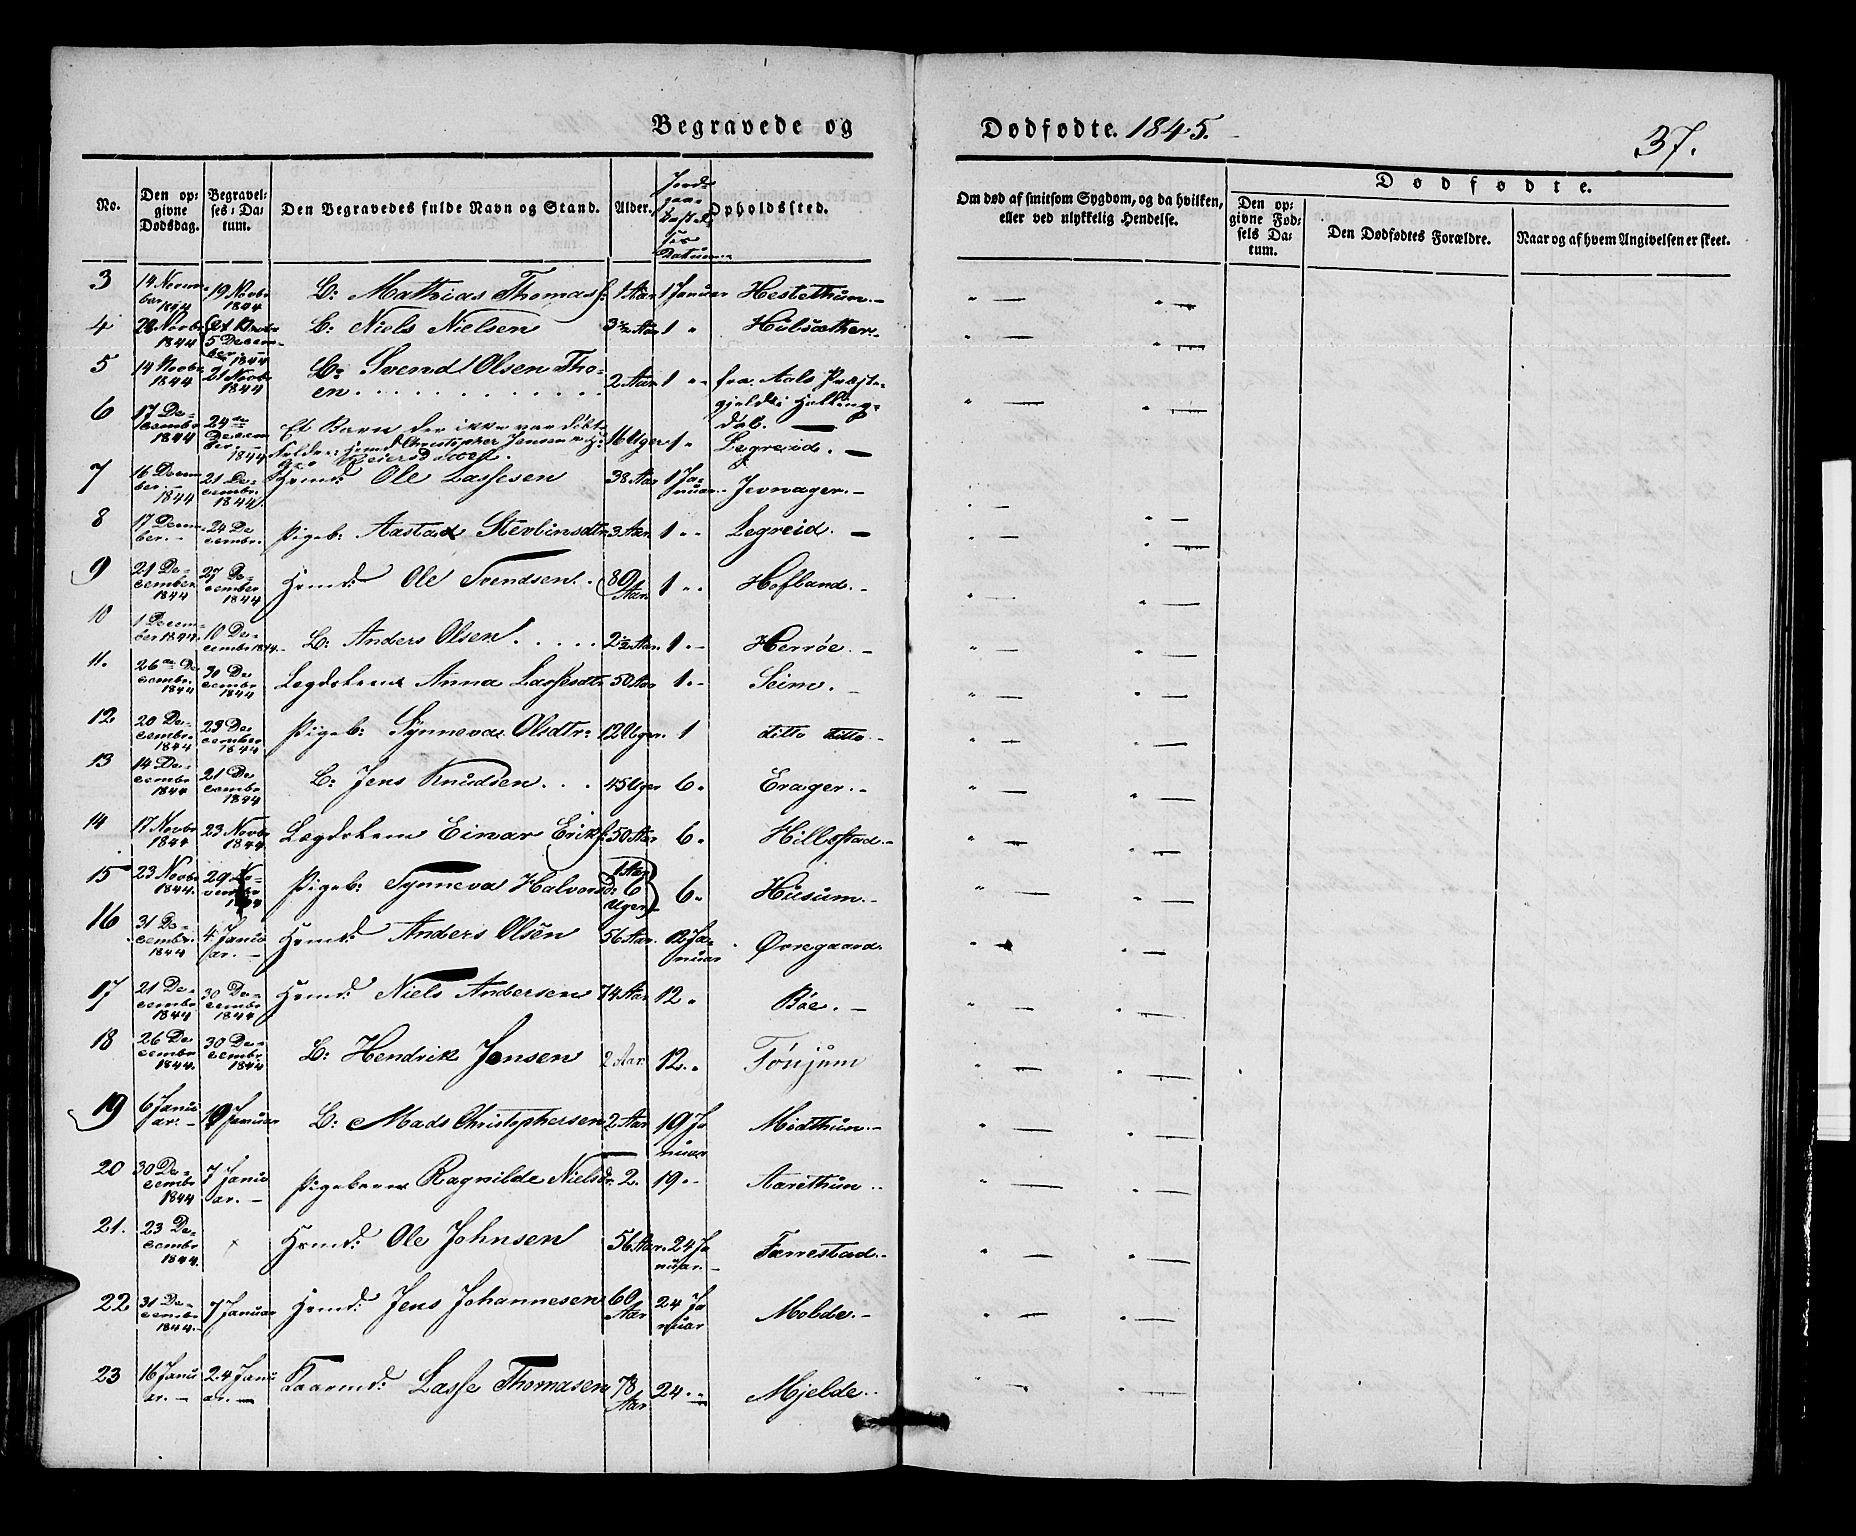 Begravede og Dødfødte. 1845. 37.
No. Den opgivne Dødsdag. Begravelses-Datum. Den Begravedes fulde Navn og Stand. Alder. Opholdssted. Om død af smitsom Sygdom, og da hvilken, eller ved ulykkelig Hendelse.
Dødfødte.
Den opgivne Fødsels Datum. Den Dødfødtes Forældre. Naar og af hvem Angivelsen er skeet.
3 14 November 1844 19 Novbr 1844 B: Mathias Thomass: 1 Aar 1 Januar Hestethun.
4 Novbr 1844 5 December 1844 B: Niels Nielsen 3 1/2 Aar 1 " Hulsæther.
5 14 Novbr 1844 21 Novbr 1844 B: Svend Olsen Thoen 2 Aar 1 " fra Aals Præstegjeld i Hallingdal.
6 17 December 1844 24de December 1844 Et Barn der ikke var döbt Christopher Jensen 16 Uger 1 " Legreid.
7 16 December 1844 21 December 1844 Hrmd: Ole Lassesen 38 Aar 1 Januar Jevnager.
8 17 December. 24 December. Pigeb: Aastad Stevlinsdtr 3 Aar 1 " Legreid.
9 21 December 1844 27 December 1844 Hrmd: Ole Svendsen 80 Aar 1 " Hofland.
10 1 December 1844 10 December 1844 B: Anders Olsen 2 1/2 Aar 1 " Herrøe.
11. 26de December 1844 30 December 1844 Lægdslem Anna Lassesdtr 50 Aar 1 " Seim.
12 20 December 1844 23 December 1844 Pigeb: Synneva Olsdtr: 12 Uger 1 ditto ditto
13 14 December 1844 21 December 1844 B: Jens Knudsen 45 Uger 6 " Erager.
14 17 Novbr 1844 23 Novbr 1844 Lægdslem Einar Eriks: 50 Aar 6 " Hillestad.
15 23 Novbr 1844. 29 November 1844 Pigeb: Synneva Halvorsd: 1 Aar 6 Uger 6 " Husum.
16 31 December 1844 4 Januar. Hrmd: Anders Olsen 56 Aar. 12 Januar Øvregaard.
17 21 December 1844 30 December 1844 Hrmd: Niels Andersen 74 Aar 12 " Bøe.
18 26 December 1844. 30 December 1844 B: Hendrik Jensen 2 Aar 12 " Tønjum
19 6 Januar. Januar B: Mads Christophersen 2 Aar 19 Januar Midthun.
20 30 December 1844 7 Januar. Pigebarn Ragnilde Nielsdr. 2. 19 " Aarethun.
21. 23 December 1844. Hrmd: Ole Johnsen 56 Aar. 24 Januar. Færrestad.
22 31 December 1844. 7 Januar Hrmd: Jens Johannesen 60 Aar 24 Januar Molde.
23 16 Januar. 24 Januar. Kaarmd: Lasse Thomasen 78 Aar 24 " Mjelde.